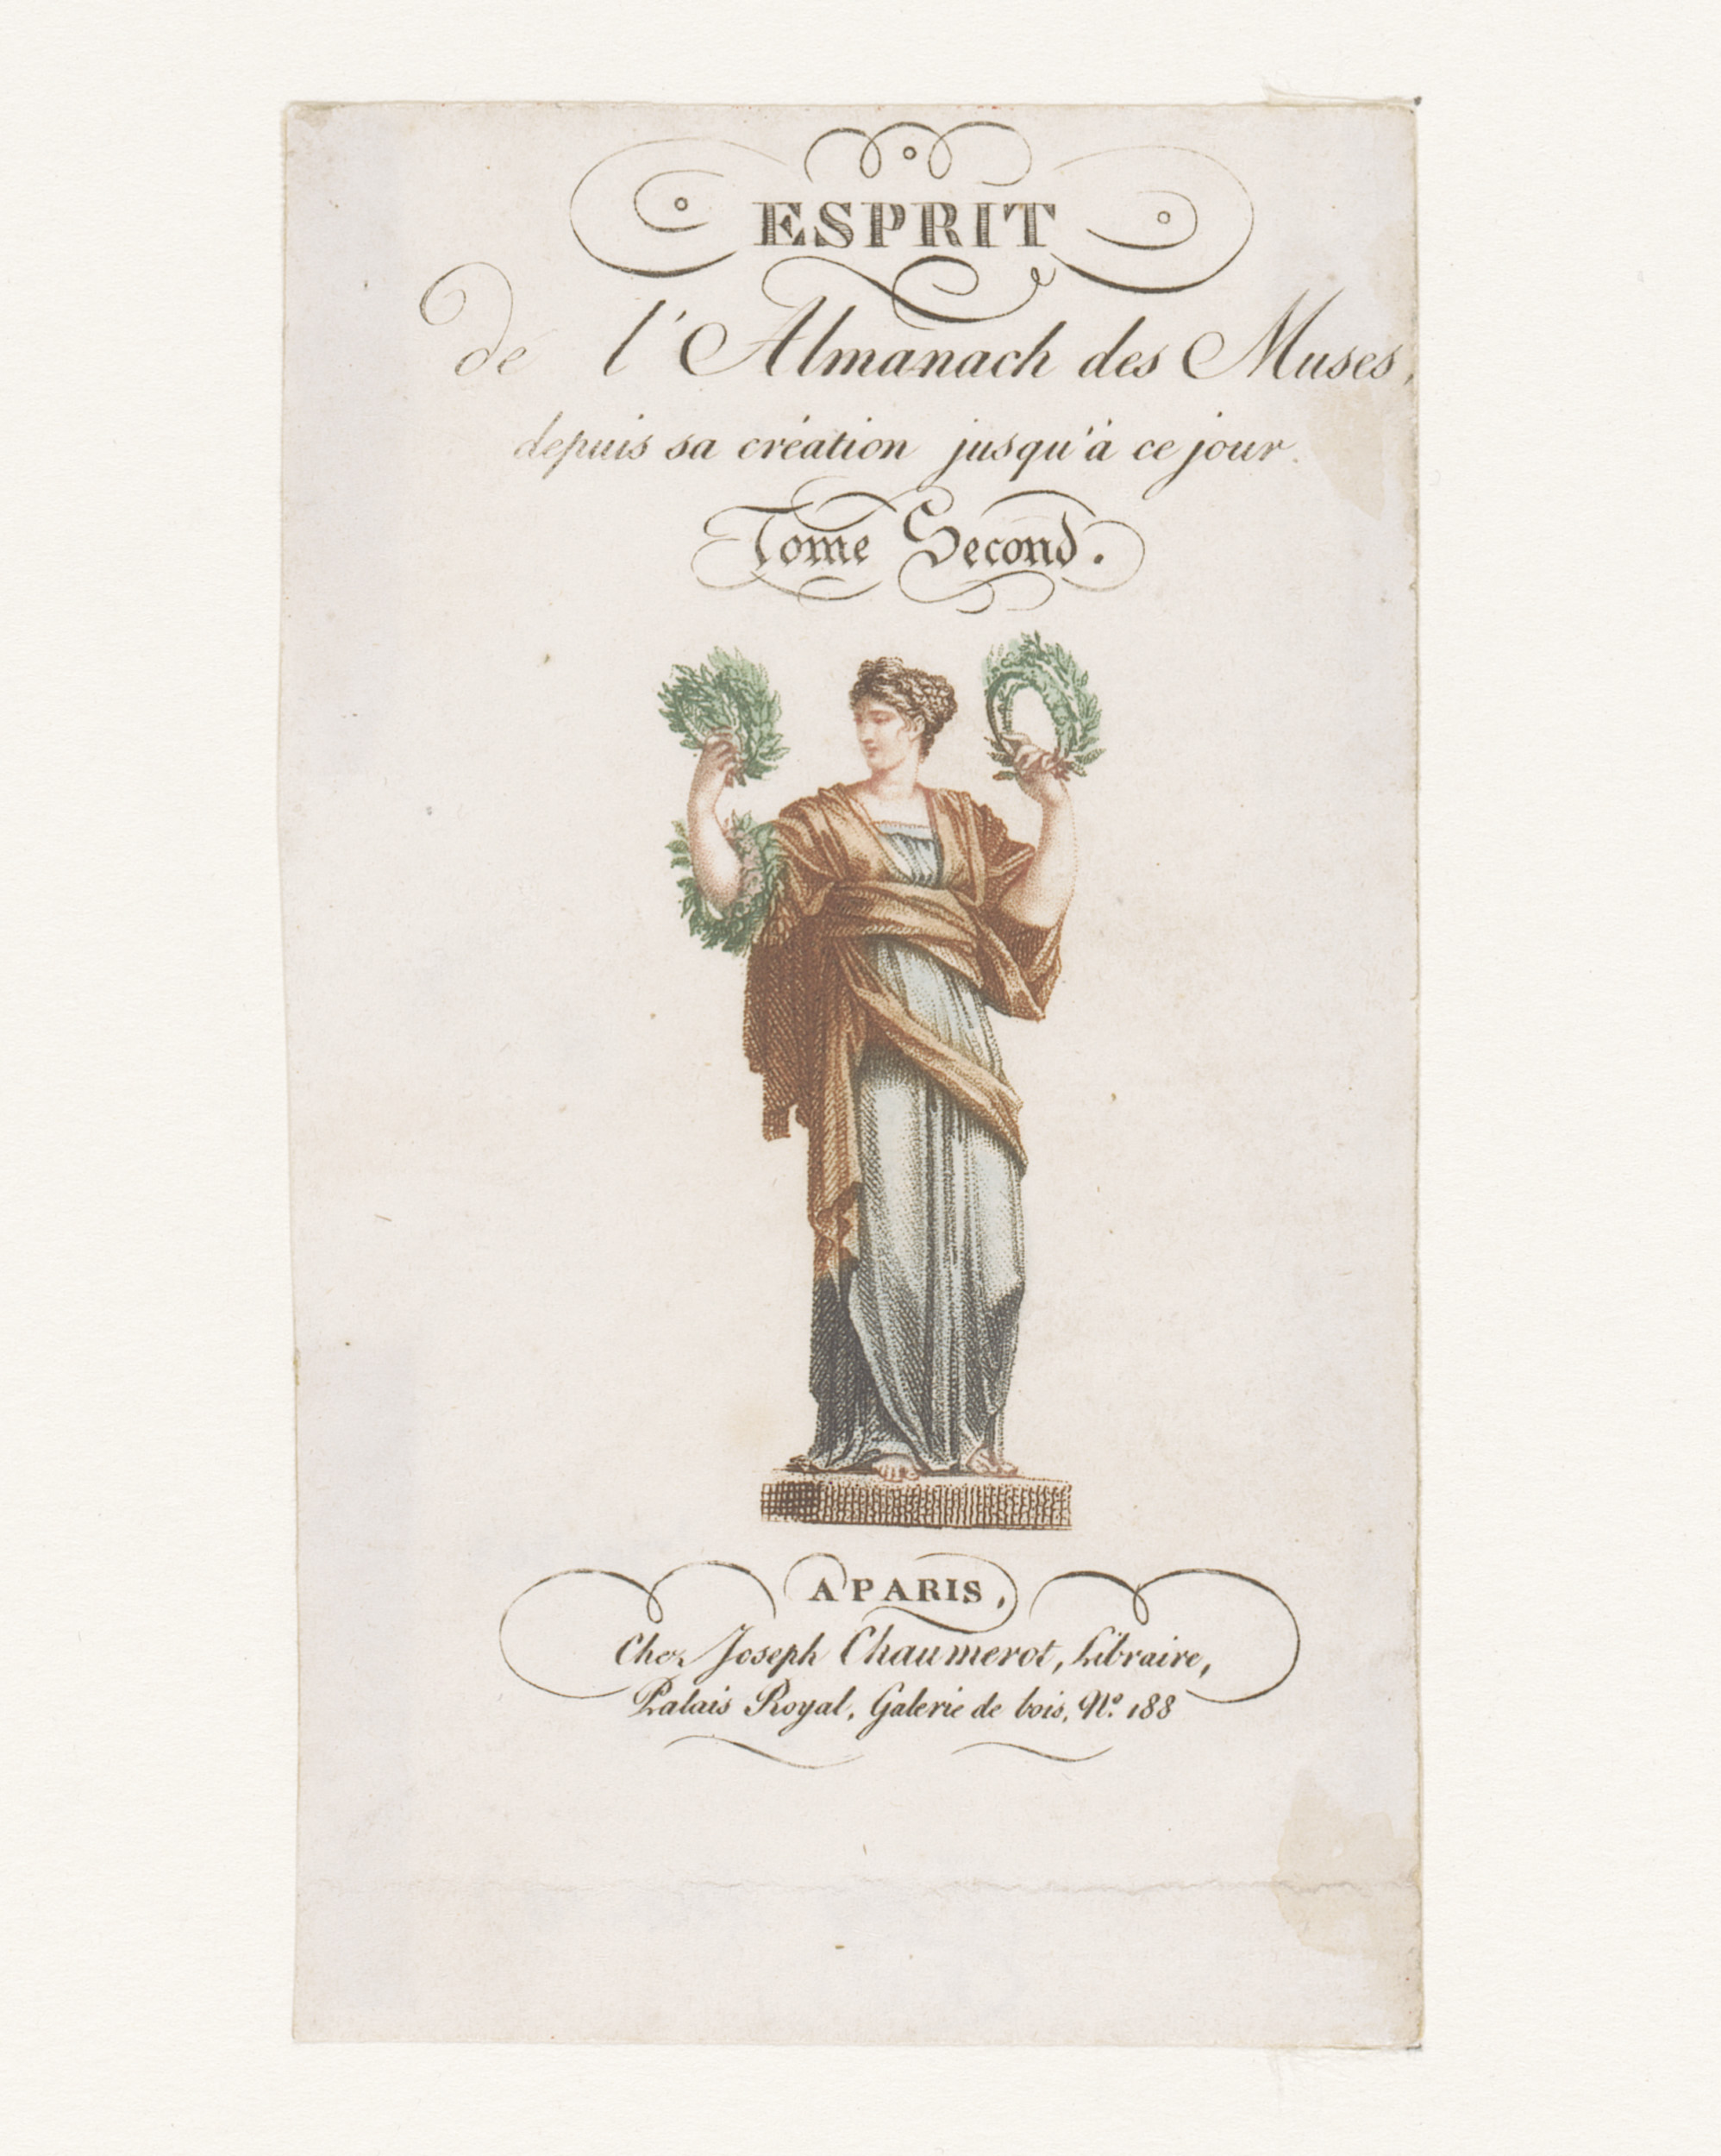 ESPRIT
de l'Almanach des Muses,
depuis sa création jusqu'à ce jour.
Tome Second.
A PARIS,
Chez Joseph Chaumerot, Libraire,
Palais Royal, Galerie de bois, Nº. 188